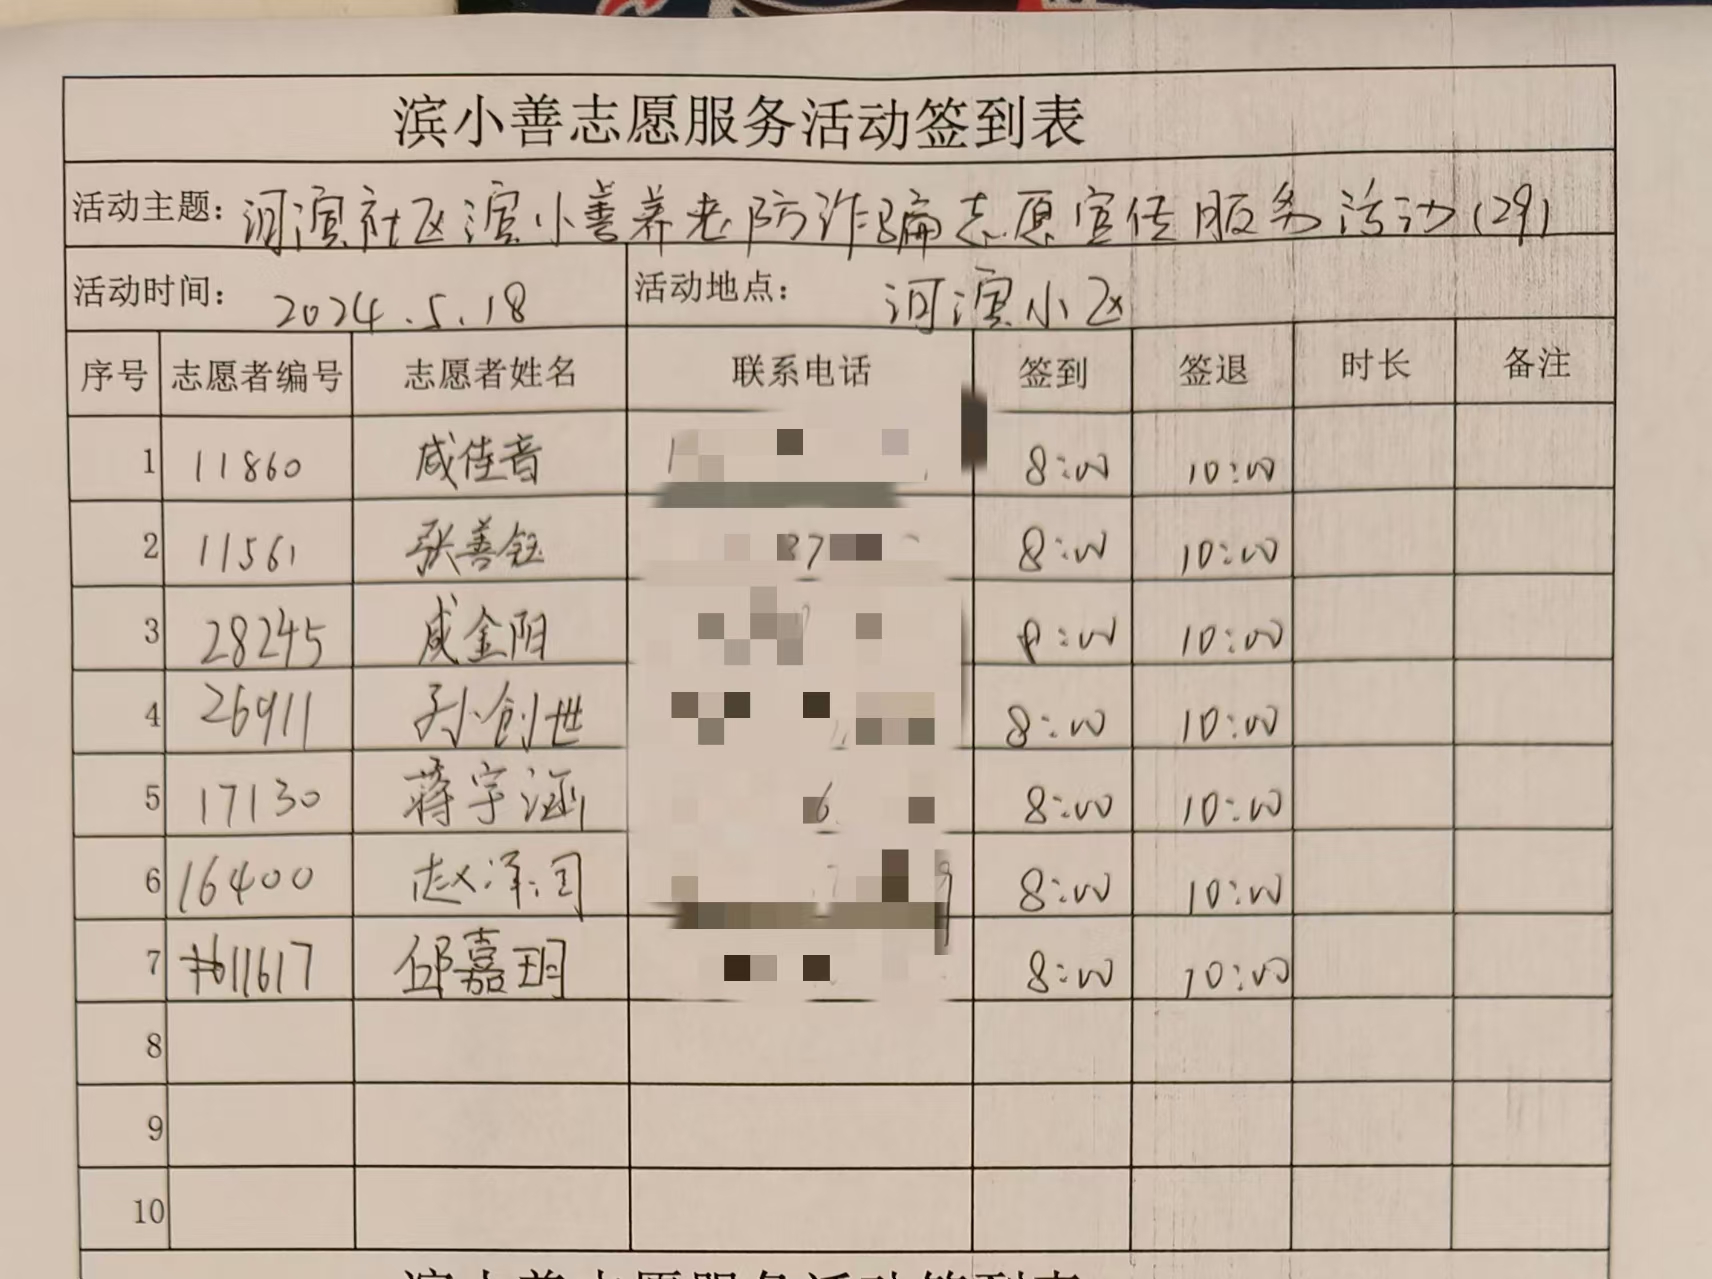 滨小善志愿服务活动签到表
活动主题: 河滨社区滨小善养老防诈骗志愿宣传服务活动(29)
活动时间: 2024.5.18 活动地点: 河滨小区
序号 志愿者编号 志愿者姓名 联系电话 签到 签退 时长 备注
1 11860 咸佳音 8:00 10:00
2 11561 张善钰 8:00 10:00
3 28245 咸金阳 8:00 10:00
4 26911 孙创世 8:00 10:00
5 17130 蒋宇涵 8:00 10:00
6 16400 赵泽润 8:00 10:00
7 11617 邱嘉玥 8:00 10:00
8
9
10
滨小善志愿服务活动签到表